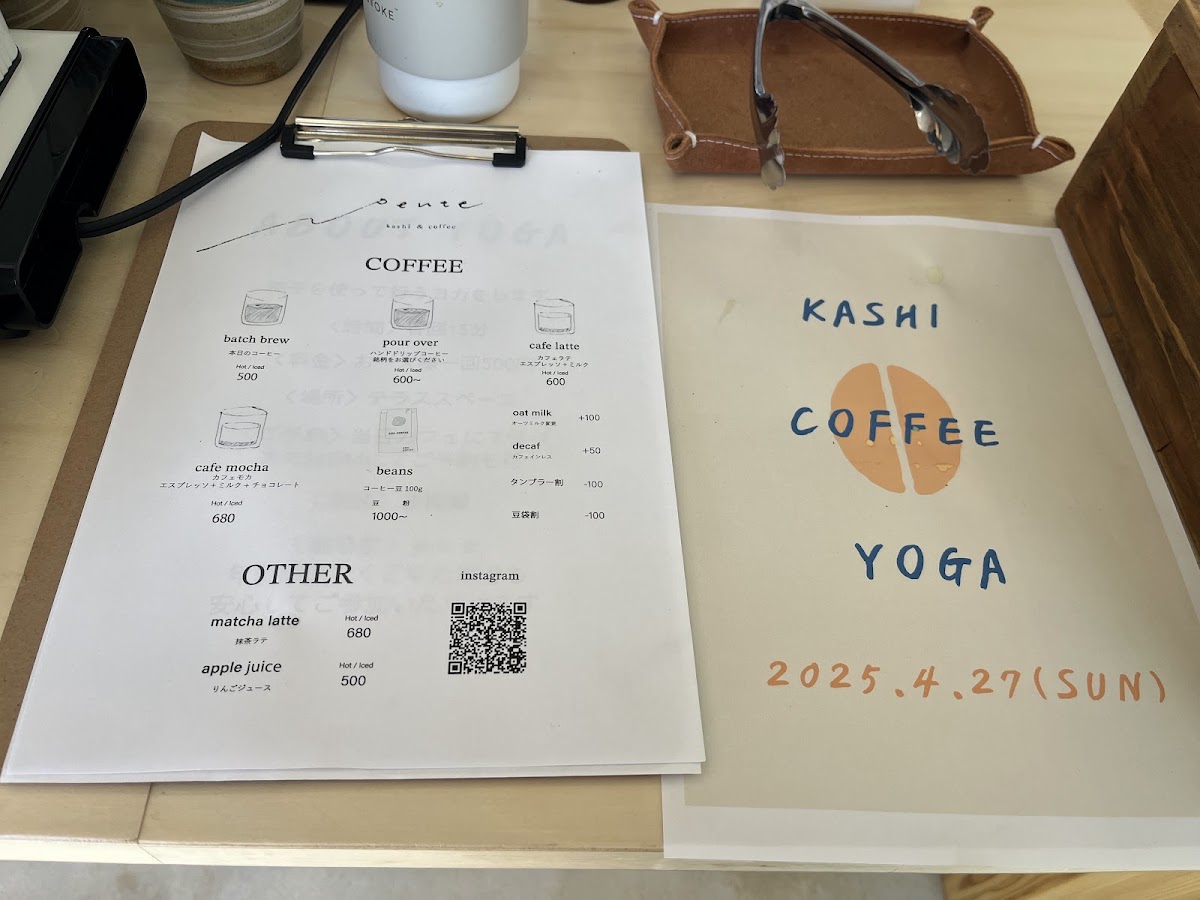 pente
kashi & coffee
COFFEE
batch brew
本日のコーヒー
Hot / Iced
500
pour over
ハンドドリップコーヒー
銘柄をお選びください
Hot / Iced
600~
cafe latte
カフェラテ
エスプレッソ+ミルク
Hot / Iced
600
cafe mocha
カフェモカ
エスプレッソ+ミルク+チョコレート
Hot / Iced
680
beans
コーヒー豆 100g
豆 粉
1000~
oat milk +100
オーツミルク変更
decaf +50
カフェインレス
タンブラー割 -100
豆袋割 -100
OTHER
matcha latte Hot / Iced
抹茶ラテ 680
apple juice Hot / Iced
りんごジュース 500
instagram
KASHI
COFFEE
YOGA
2025.4.27(SUN)